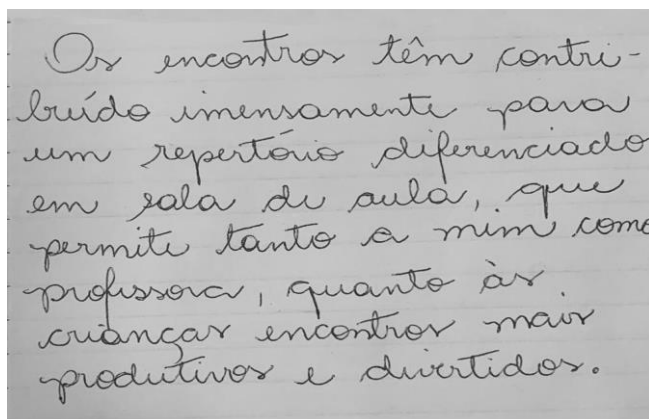 Os encontros têm contri-
buído imensamente para
um repertório diferenciado
em sala de aula, que
permite tanto a mim como
professora, quanto às
crianças encontros mais
produtivos e divertidos.